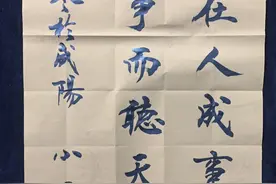 在人成事
争而聽天
於咸陽 小